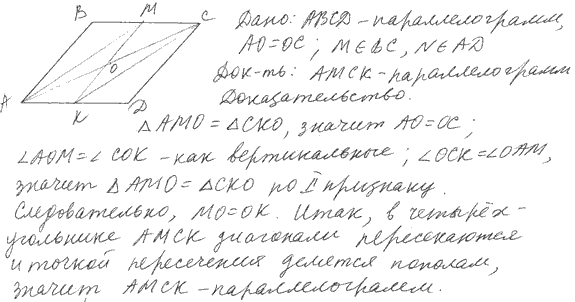 B M C
O
A K D
Дано: ABCD - параллелограмм,
AO=OC; M∈BC, N∈AD
Док-ть: AMCK - параллелограмм
Доказательство.
△AMO = △CKO, значит AO=OC;
∠AOM=∠COK - как вертикальные; ∠OCK=∠OAM,
значит △AMO = △CKO по II признаку.
Следовательно, MO=OK. Итак, в четырёх-
угольнике AMCK диагонали пересекаются
и точкой пересечения делятся пополам,
значит AMCK - параллелограмм.